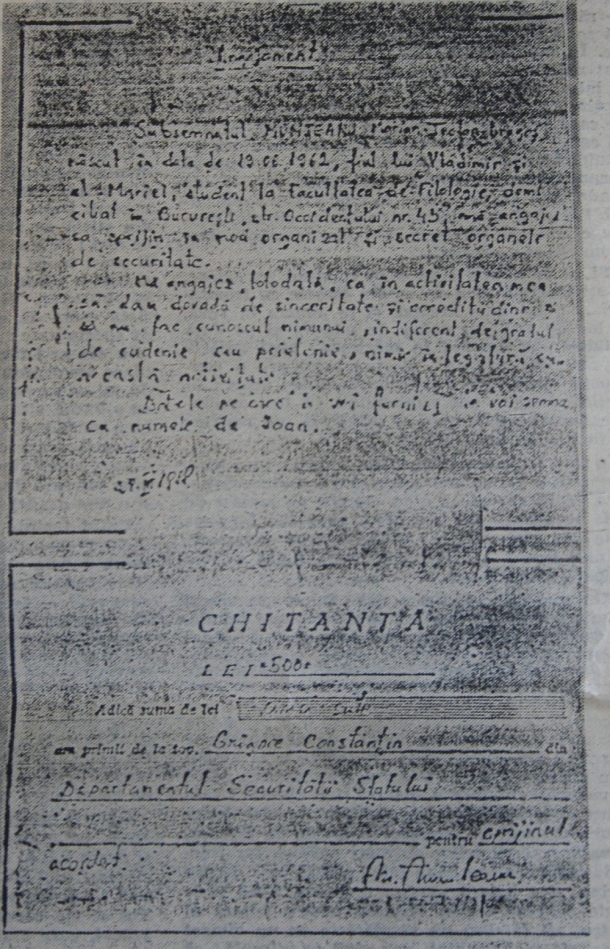 Angajament
Subsemnatul, MUNTEANU Marian
născut în data de 13.06.1962, fiul lui Vladimir și
al Mariei, student la Facultatea de Filologie, domi
ciliat în București, str. Occidentului nr. 45, mă angajez
sa sprijin în mod organizat și secret organele
de securitate.
Mă angajez, totodată, ca în activitatea mea
să dau dovadă de sinceritate și
să nu fac cunoscut nimănui, indiferent de gradul
de rudenie sau prietenie, nimic în legătură cu
această activitate.
Datele pe care le voi furniza le voi semna
cu numele de Ioan.
CHITANTA
LEI =500=
Adică suma de lei
am primit de la tov. Grigore Constantin din
Departamentul Securității Statului
pentru sprijinul
acordat.